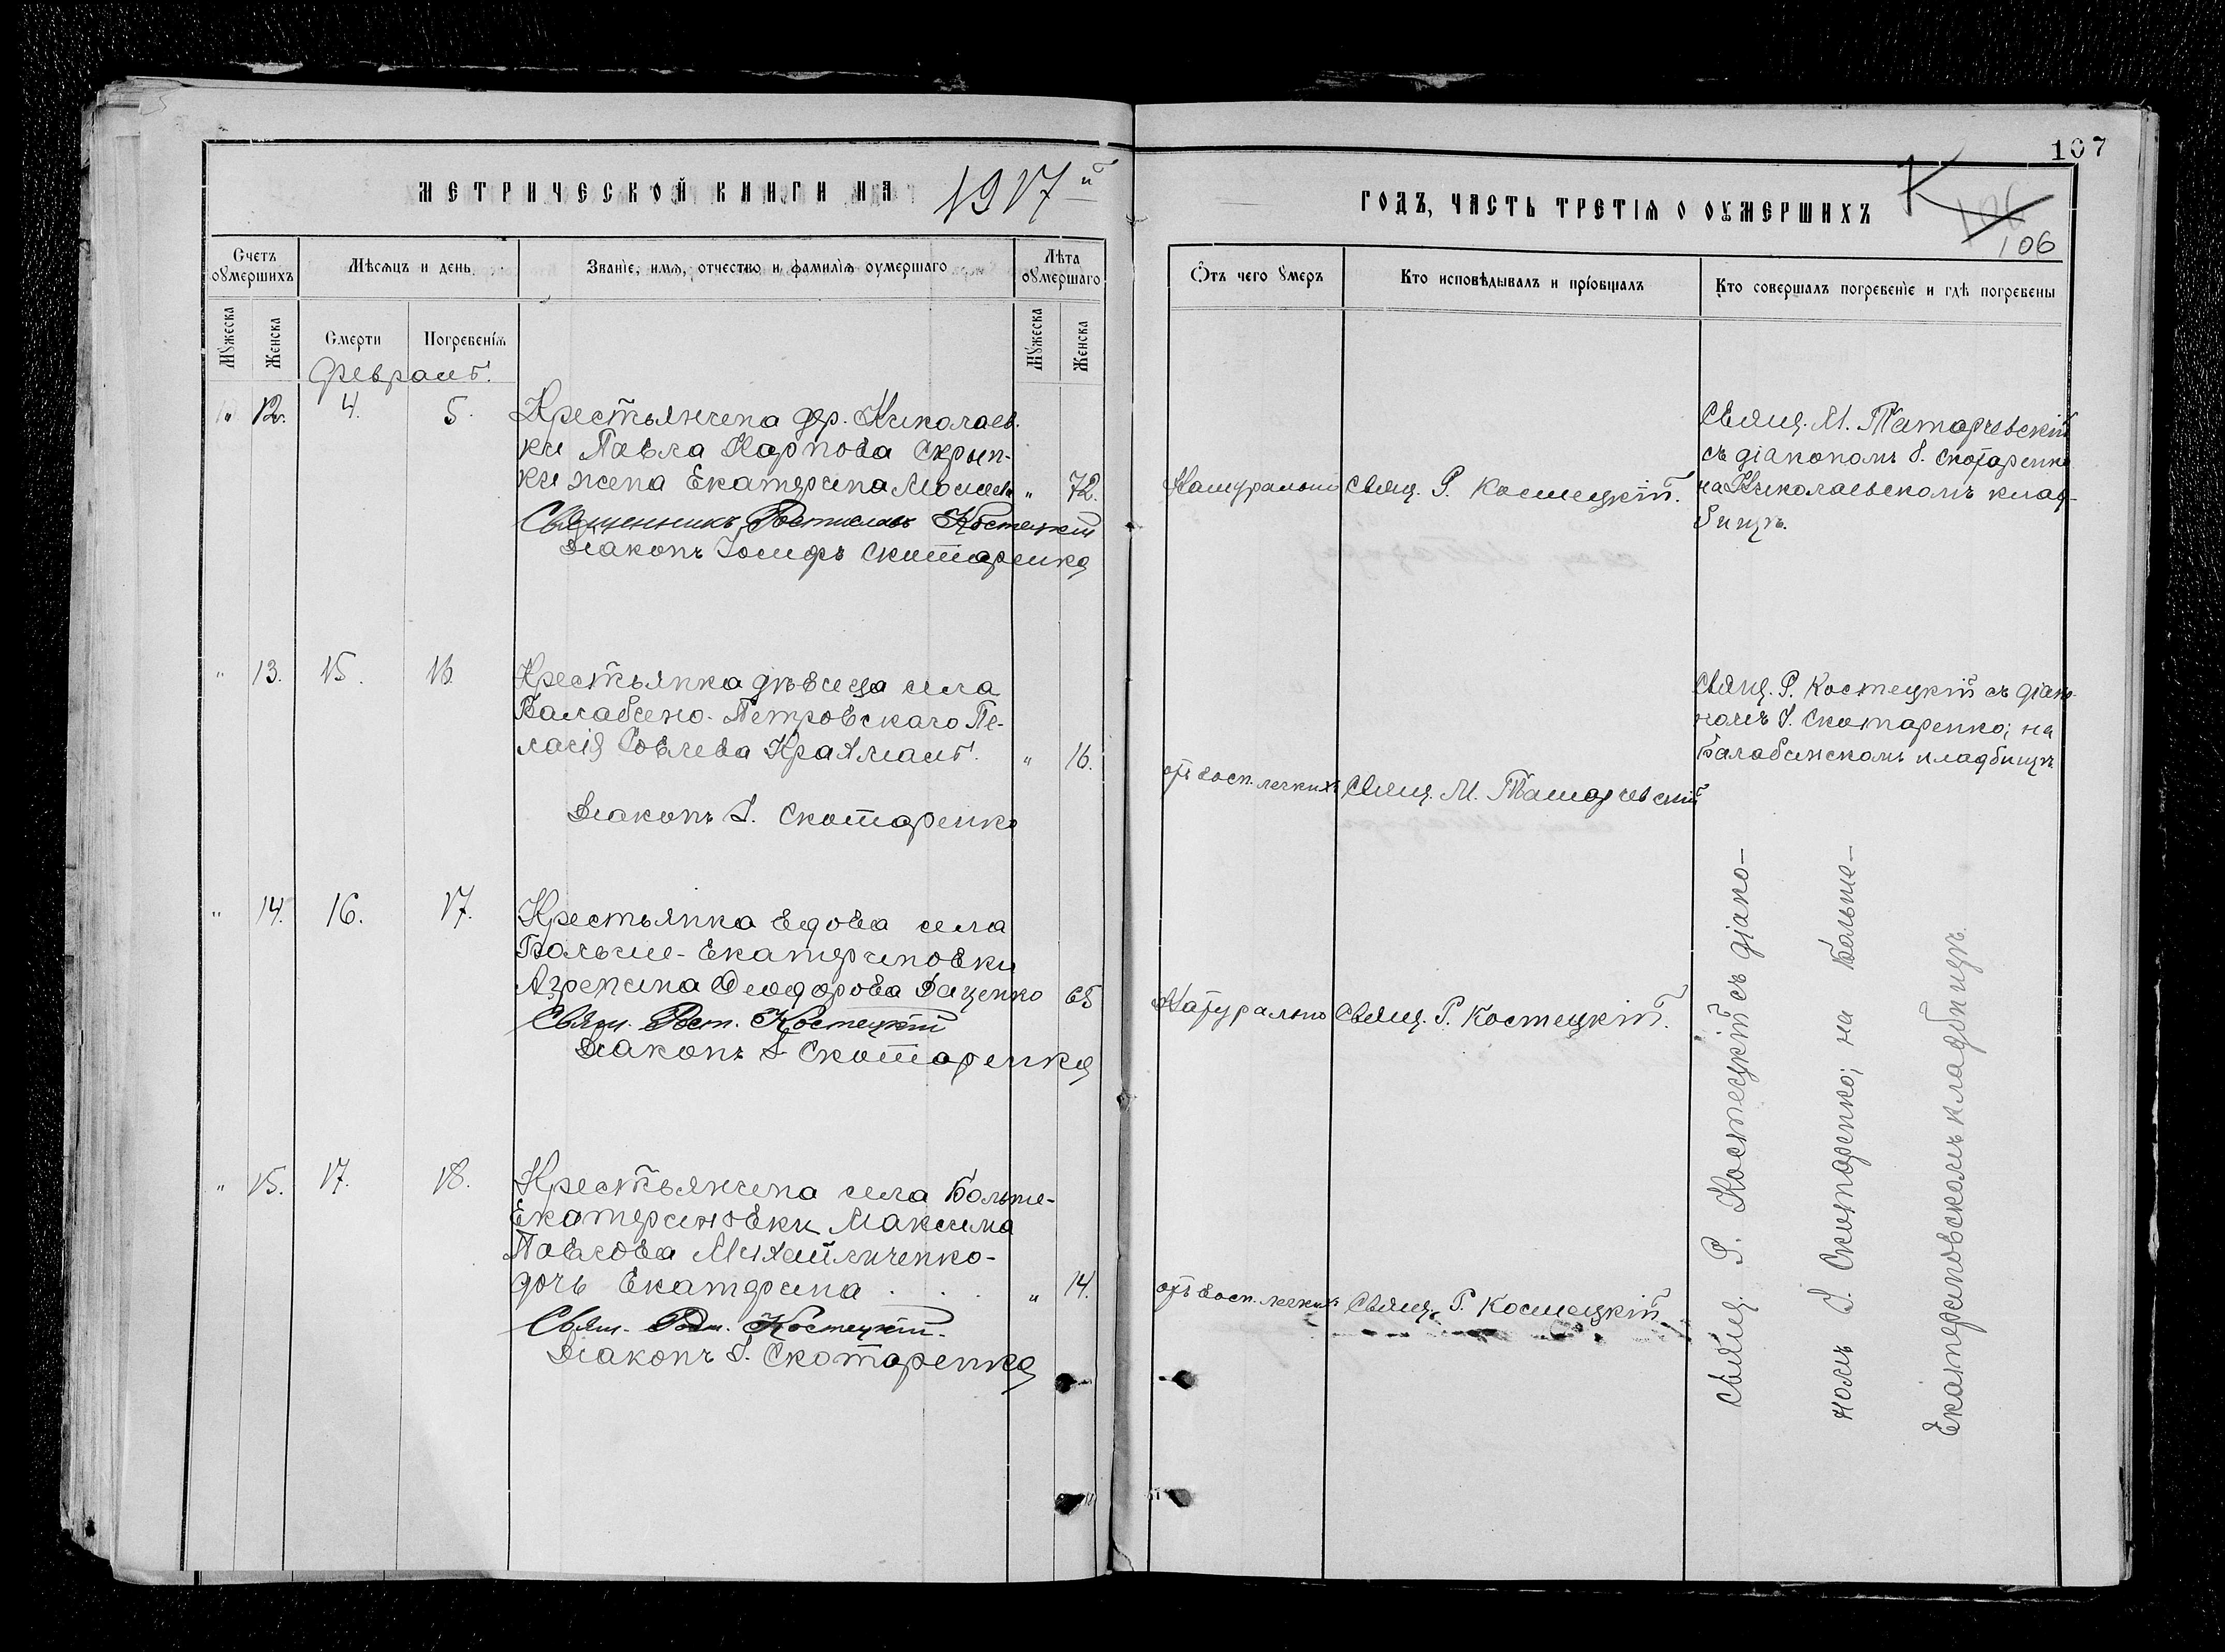 107
МЕТРИЧЕСКОЙ КНИГИ НА 1917й
ГОДЪ, ЧАСТЬ ТРЕТІЯ О ОУМЕРШИХЪ
106
Счетъ оумершихъ
Мѣсяцъ и день
Званіе, имя, отчество и фамилія оумершаго
Лѣта оумершаго
Ѿтъ чего оумеръ
Кто исповѣдывалъ и пріобщалъ
Кто совершалъ погребеніе и гдѣ погребены
Мужеска
Женска
Смерти
Погребенія
Мужеска
Женска
Февраль.
" 12. 4. 5.
Крестьянина дер. Николаев-
ки Павла Карпова Скрып-
ки жена Екатерина " 72.
Священникъ Ростиславъ Костецкій
Діаконъ Іосифъ Скотаренко
Натурально
Свящ. Р. Костецкій.
Свящ. М. Татарчевскій
съ діакономъ І. Скотаренко
на Николаевскомъ клад-
бищѣ.
" 13. 15. 16.
Крестьянка дѣвица села
Балабино-Петровскаго Пе-
лагія " 16.
Діаконъ І. Скотаренко
отъ восп. легкихъ
Свящ. М. Татарчевскій
Свящ. Р. Костецкій съ діако-
номъ І. Скотаренко; на
Балабинскомъ кладбищѣ
" 14. 16. 17.
Крестьянка вдова села
Больше-Екатериновки
Агрепина Феодорова Даценко 65
Свящ. Рост. Костецкій
Діаконъ І. Скотаренко
Натурально
Свящ. Р. Костецкій.
" 15. 17. 18.
Крестьянина села Больше-
Екатериновки Максима
Павлова Михайличенко-
дочь Екатерина . . . " 14.
Свящ. Рост. Костецкій.
Діаконъ І. Скотаренко
отъ восп. легкихъ
Свящ. Р. Костецкій
Свящ. Р. Костецкій съ діако-
номъ І. Скотаренко; на Больше-
Екатериновскомъ кладбищѣ.